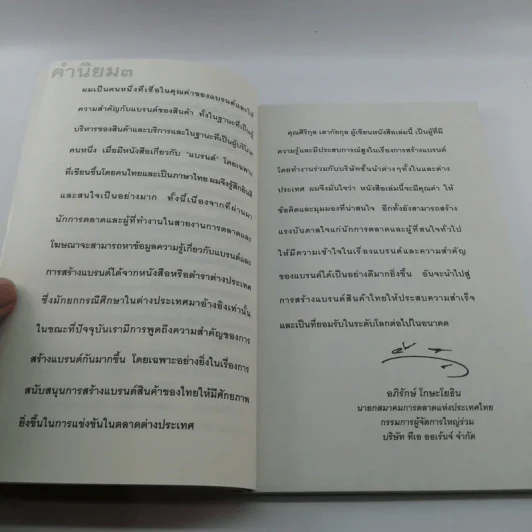 คำนิยม๓
ผมเป็นคนหนึ่งที่เชื่อในคุณค่าของแบรนด์และให้
ความสำคัญกับแบรนด์ของสินค้า ทั้งในฐานะที่เป็นผู้
บริหารของสินค้าและบริการและในฐานะที่เป็นผู้บริโภค
คนหนึ่ง เมื่อมีหนังสือเกี่ยวกับ "แบรนด์" โดยเฉพาะ
ที่เขียนขึ้นโดยคนไทยและเป็นภาษาไทย ผมจึงรู้สึกยินดี
และสนใจเป็นอย่างมาก ทั้งนี้เนื่องจากที่ผ่านมา
นักการตลาดและผู้ที่ทำงานในสายงานการตลาดและ
โฆษณาจะสามารถหาข้อมูลความรู้เกี่ยวกับแบรนด์และ
การสร้างแบรนด์ได้จากหนังสือหรือตำราต่างประเทศ
ซึ่งมักยกกรณีศึกษาในต่างประเทศมาอ้างอิงเท่านั้น
ในขณะที่ปัจจุบันเรามีการพูดถึงความสำคัญของการ
สร้างแบรนด์กันมากขึ้น โดยเฉพาะอย่างยิ่งในเรื่องการ
สนับสนุนการสร้างแบรนด์สินค้าของไทยให้มีศักยภาพ
ยิ่งขึ้นในการแข่งขันในตลาดต่างประเทศ
คุณศิริกุล เลากัยกุล ผู้เขียนหนังสือเล่มนี้ เป็นผู้ที่มี
ความรู้และมีประสบการณ์สูงในเรื่องการสร้างแบรนด์
โดยทำงานร่วมกับบริษัทชั้นนำต่างๆทั้งในและต่าง
ประเทศ ผมจึงมั่นใจว่า หนังสือเล่มนี้จะมีคุณค่า ให้
ข้อคิดและมุมมองที่น่าสนใจ อีกทั้งยังสามารถสร้าง
แรงบันดาลใจแก่นักการตลาดและผู้ที่สนใจทั่วไป
ให้มีความเข้าใจในเรื่องแบรนด์และความสำคัญ
ของแบรนด์ได้เป็นอย่างดีมากยิ่งขึ้น อันจะนำไปสู่
การสร้างแบรนด์สินค้าไทยให้ประสบความสำเร็จ
และเป็นที่ยอมรับในระดับโลกต่อไปในอนาคต
อภิรักษ์ โกษะโยธิน
นายกสมาคมการตลาดแห่งประเทศไทย
กรรมการผู้จัดการใหญ่ร่วม
บริษัท ทีเอ ออเร้นจ์ จำกัด